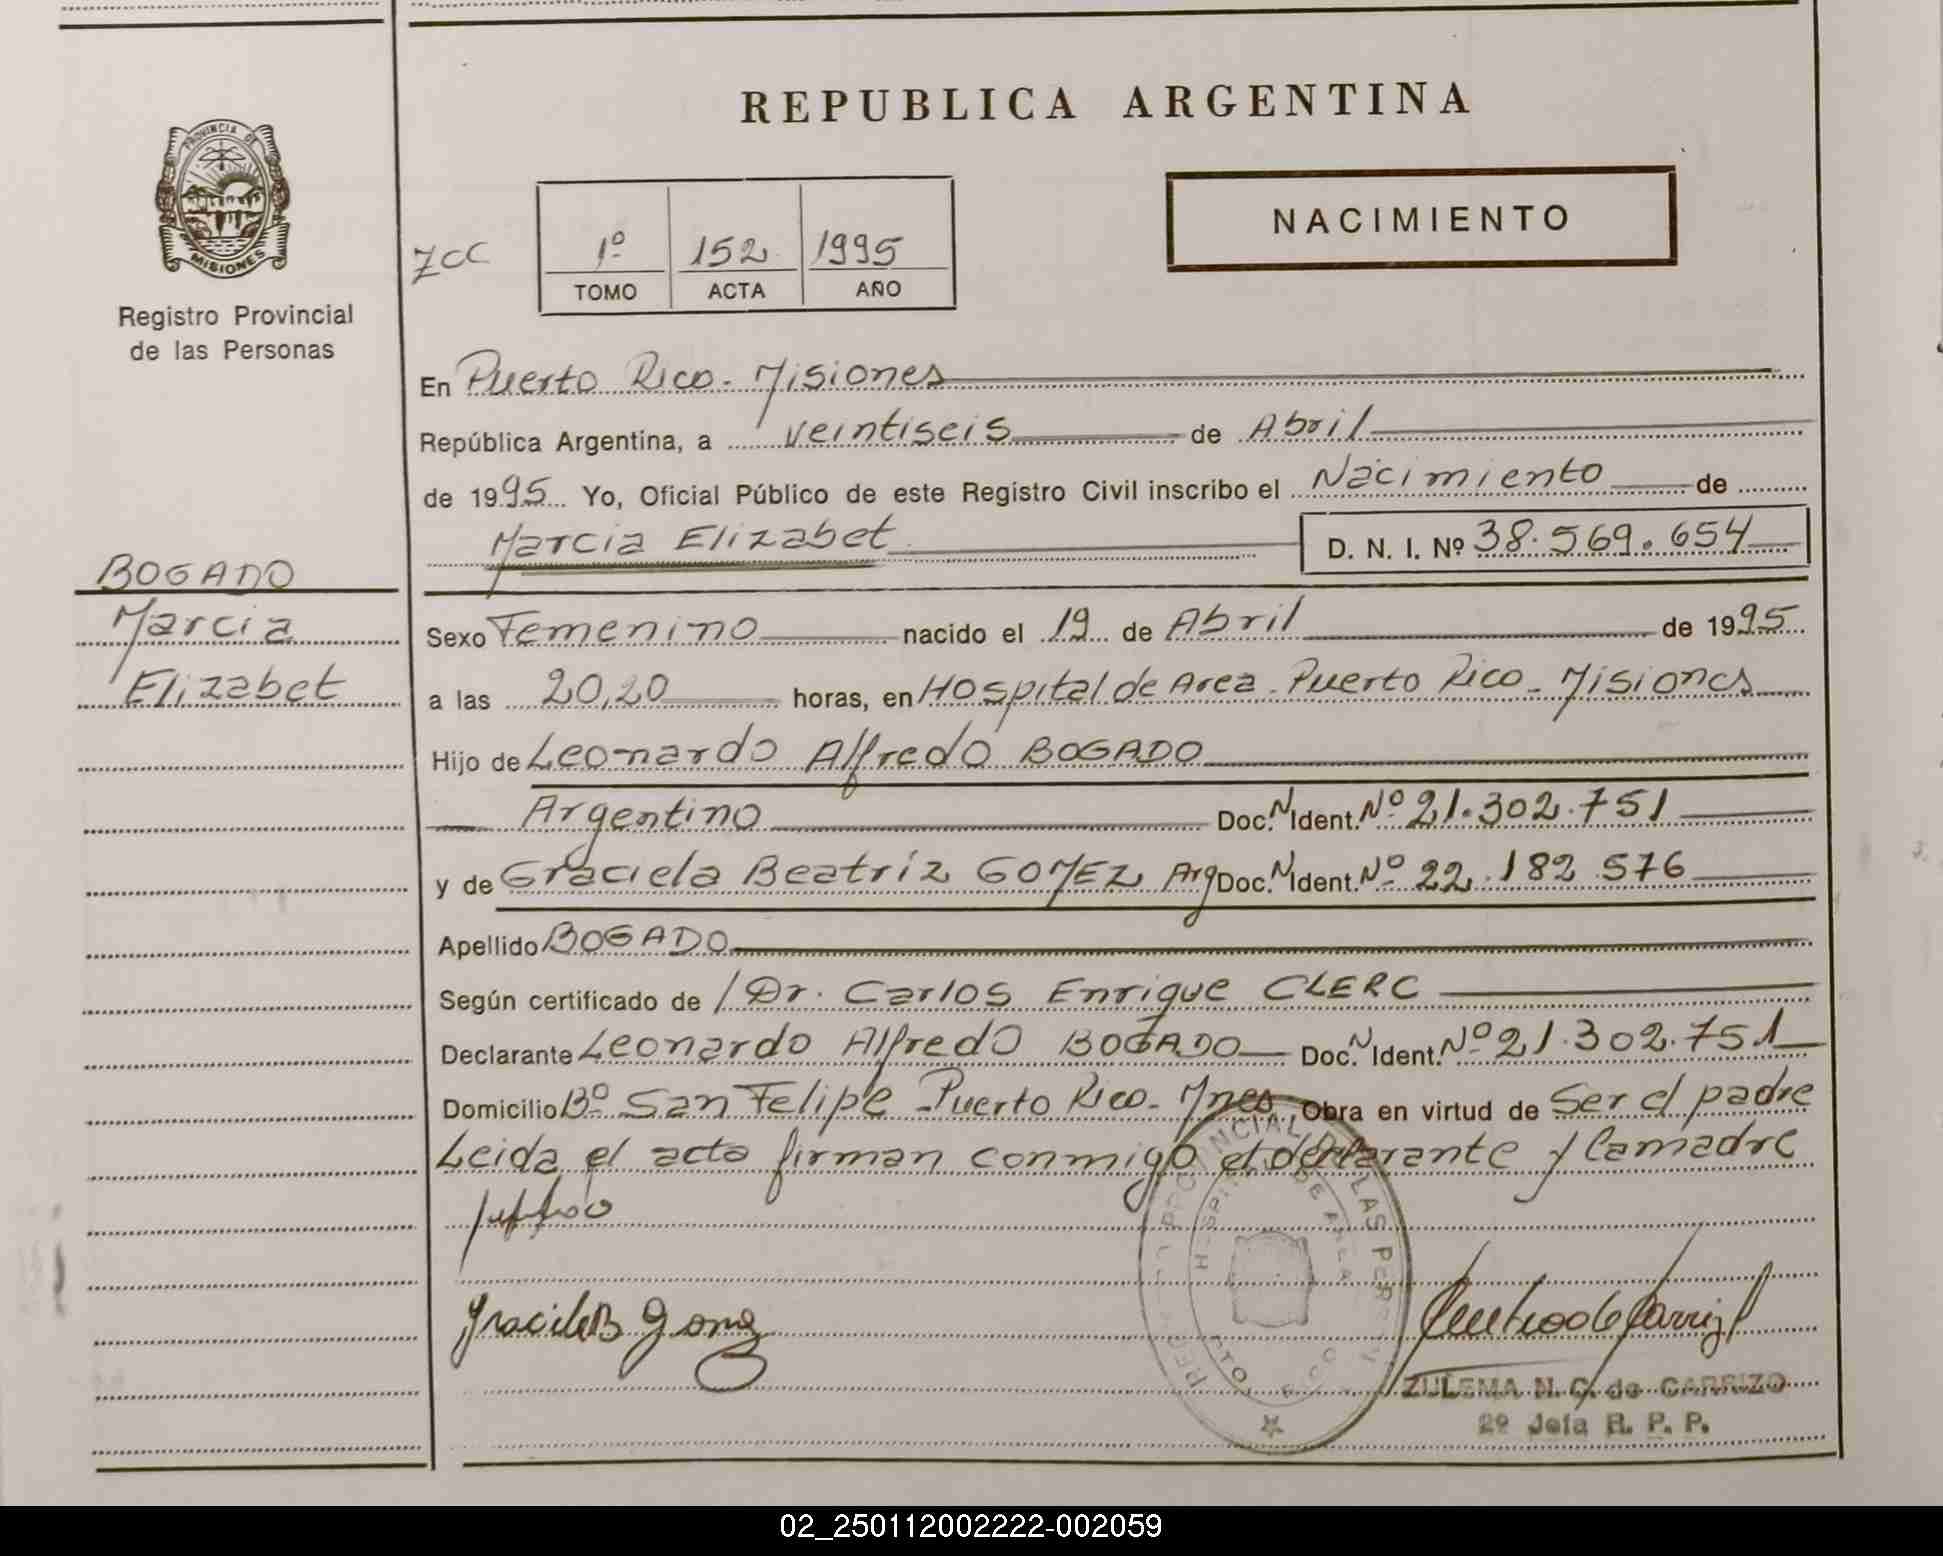 REPUBLICA ARGENTINA
PROVINCIA DE
MISIONES
Registro Provincial
de las Personas
NACIMIENTO
ZCC
1º 152 1995
TOMO ACTA AÑO
En Puerto Rico - Misiones
República Argentina, a veintiseis de Abril
de 1995 Yo, Oficial Público de este Registro Civil inscribo el Nacimiento de
Marcia Elizabet D. N. I. Nº 38.569.654
BOGADO
Marcia
Elizabet
Sexo Femenino nacido el 19 de Abril de 1995
a las 20,20 horas, en Hospital de Area - Puerto Rico - Misiones
Hijo de Leonardo Alfredo BOGADO
Argentino Doc. N. Ident. Nº 21.302.751
y de Graciela Beatriz GOMEZ Arg Doc. N. Ident. Nº 22.182.576
Apellido BOGADO
Según certificado de / Dr. Carlos Enrique CLERC
Declarante Leonardo Alfredo BOGADO Doc. N. Ident. Nº 21.302.751
Domicilio Bº San Felipe - Puerto Rico - Mnes. Obra en virtud de Ser el padre
Leida el acta firman conmigo el declarante y la madre
REG PROVINCIAL DE LAS PERSONAS
HOSPITAL DE AREA
PTO. RICO
Graciela B Gomez
ZULEMA N. C. de CARRIZO
2º Jefa R. P. P.
02_250112002222-002059